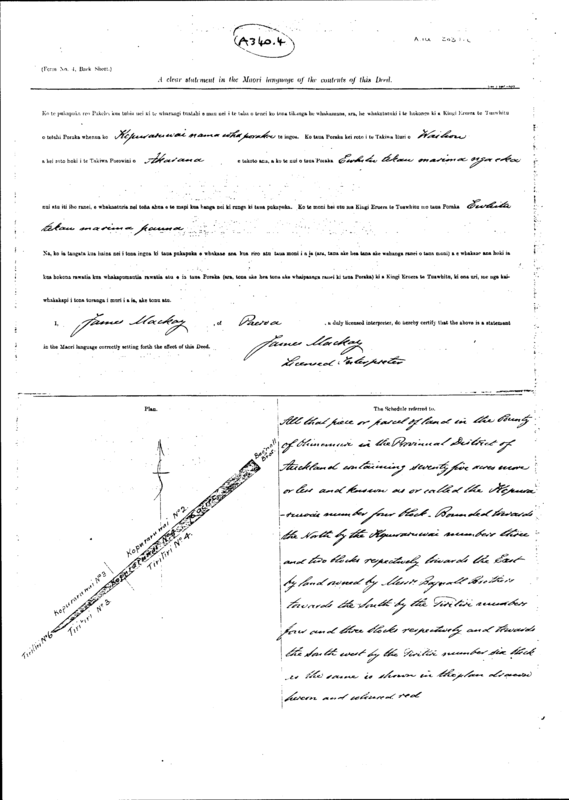 A340.4
(Form No. 4, Back Sheet.)
A clear statement in the Maori language of the contents of this Deed.
Ko te pukapuka reo Pakeha kua tuhia nei ki te wharangi tuatahi o nei i te tako o tenei ko tona tikanga he whakaaetanga, ara, he whakatuturi i te hokonga ki a Kingi Eruera te Tuawhitu
o tetahi Poraka whenua ko Kopuraruwai nama wha poraka te ingoa. Ko taua Poraka kei roto i te Takiwa Huri o
a kei roto hoki i te Takiwa Porowini o Akarana e takoto ana, a ko te nui o taua Poraka E whitu tekau marima nga eka
nui atu iti iho ranei, e whakaaturia nei tona ahua e te mapi kua hanga nei ki runga ki tana pukapuka. Ko te moni hei utu mo Kingi Eruera te Tuawhitu mo taua Poraka E whitu
tekau marima pauna
Na, ko ia tangata kua haina nei i tona ingoa ki tana pukapuka e whakaae ana kua riro atu taua moni i a ia (ara, tana ake hea tana ake wahanga ranei o taua moni) a e whakaae ana hoki ia
kua hokona rawatia kua whakapumautia rawatia atu e ia taua Poraka (ara, tona ake hea tona ake whaipaanga ranei ki taua Poraka) ki a Kingi Eruera te Tuawhitu, ki ona uri, me nga kai-
whakakapi i tona turanga i muri i a ia, ake tonu atu.
I, James Mackay, of Paeroa, a duly licensed interpreter, do hereby certify that the above is a statement
in the Maori language correctly setting forth the effect of this Deed.
James Mackay
Licensed Interpreter
Plan.
Bagnall Bros.
Kopuraruwai No 2.
Tiritiri No 4.
Kopuraruwai No 3
Tiritiri No 3.
Tiritiri No 6
The Schedule referred to.
All that piece or parcel of land in the County
of Ohinemuri in the Provincial District of
Auckland containing seventy five acres more
or less and known as or called the Kopura
-ruwai number four block - Bounded towards
the North by the Kopuraruwai numbers three
and two blocks respectively towards the East
by land owned by Messrs Bagnall Brothers
towards the South by the Tiritiri numbers
four and three blocks respectively and towards
the South west by the Tiritiri number six block
as the same is shown in the plan drawn
hereon and coloured red